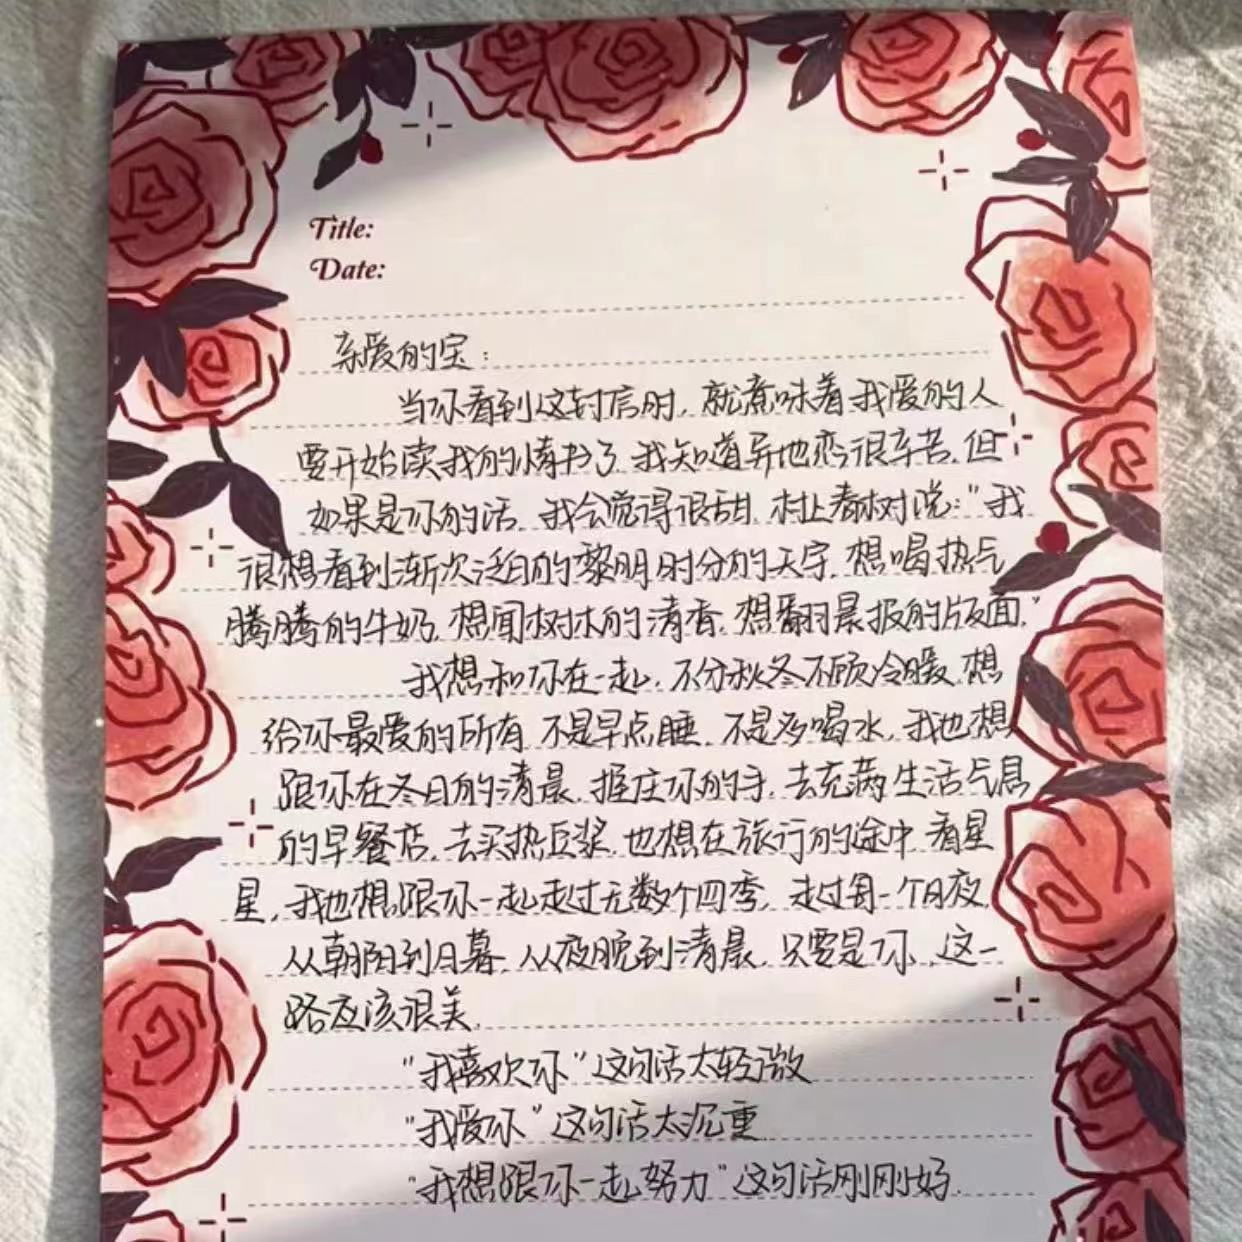 Title:
Date:
亲爱的宝：
当你看到这封信时，就意味着我爱的人
要开始读我的情书了，我知道异地恋很辛苦，但
如果是你的话，我会觉得很甜，村上春树说：“我
很想看到渐次泛白的黎明时分的天宇，想喝热气
腾腾的牛奶，想闻树木的清香，想翻晨报的版面，”
我想和你在一起，不分秋冬不顾冷暖，想
给你最爱的所有，不是早点睡，不是多喝水，我也想
跟你在冬日的清晨，握住你的手，去充满生活气息
的早餐店，去买热豆浆，也想在旅行的途中看星
星，我也想跟你一起走过无数个四季，走过每一个日夜，
从朝阳到日暮，从夜晚到清晨，只要是你，这一
路应该很美，
“我喜欢你”这句话太轻微
“我爱你”这句话太沉重
“我想跟你一起努力”这句话刚刚好.